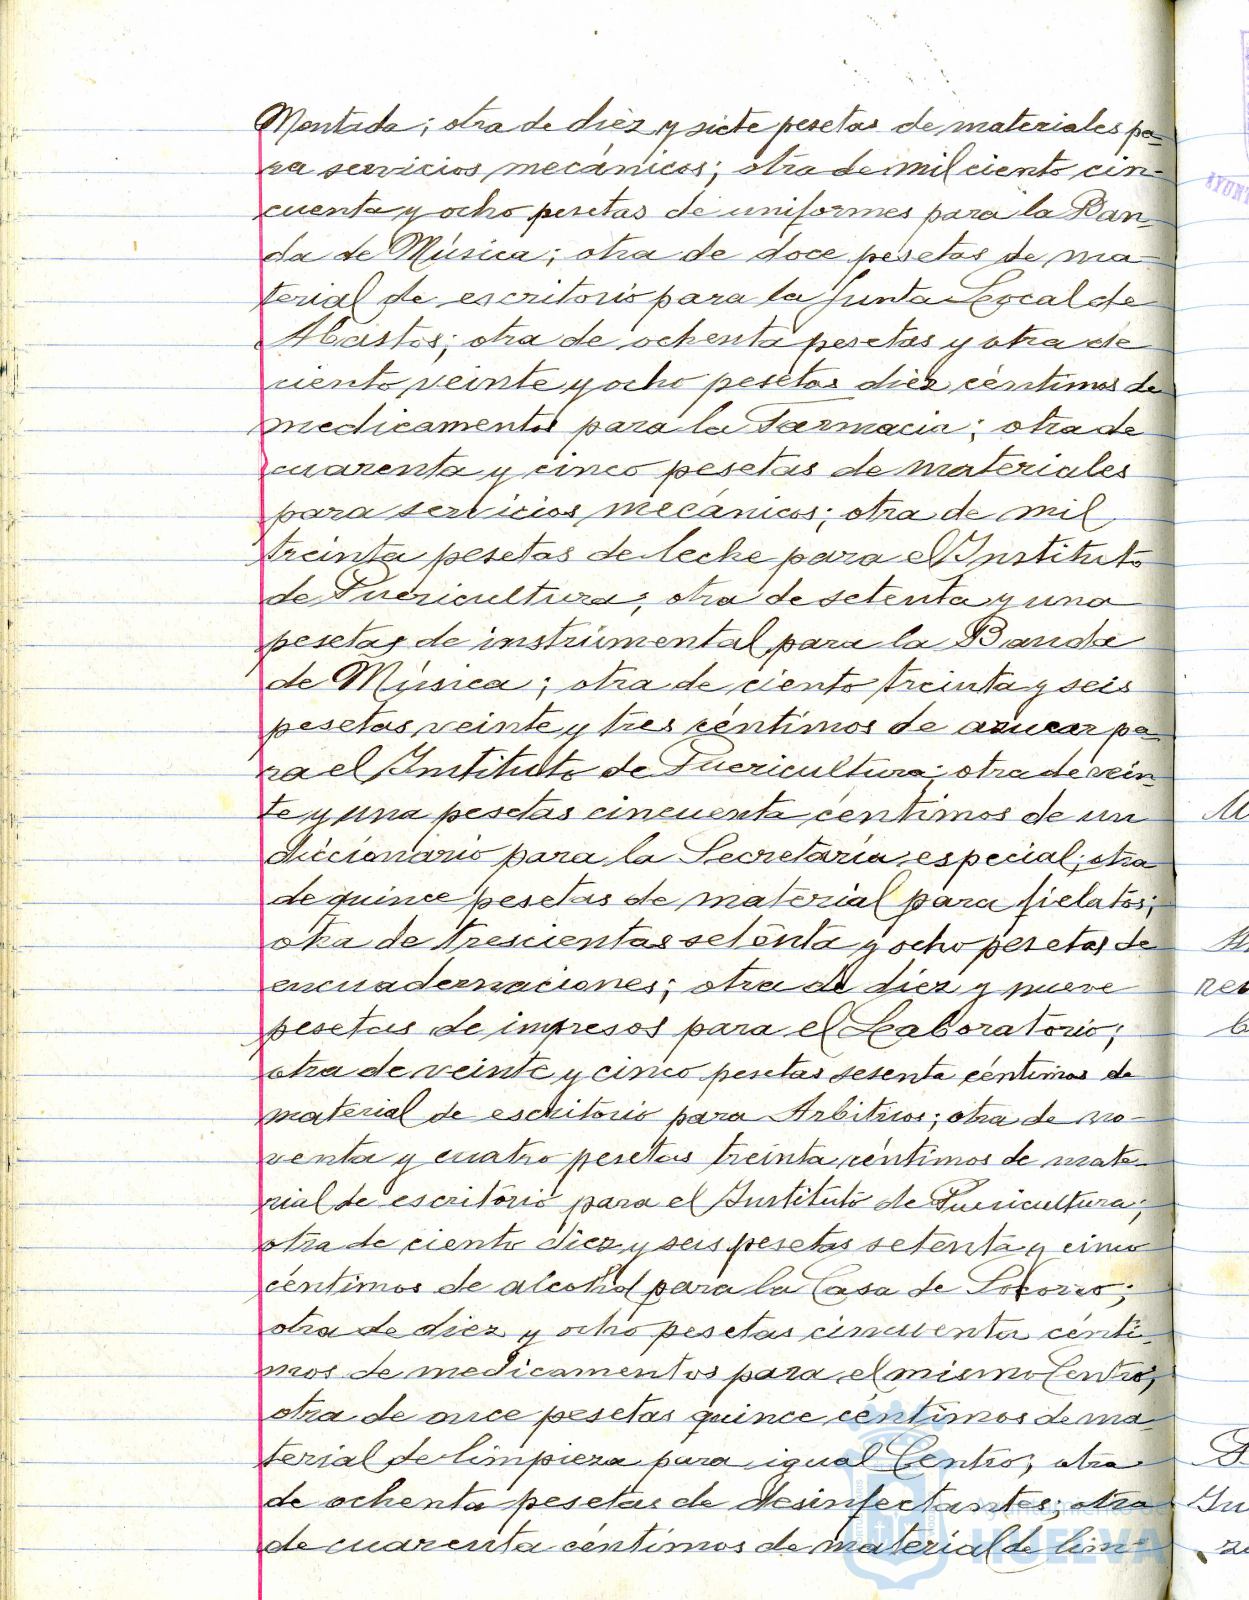 Montada; otra de diez y siete pesetas de materiales pa-
ra servicios mecánicos; otra de mil ciento cin-
cuenta y ocho pesetas de uniformes para la Ban-
da de Música; otra de doce pesetas de ma
terial de escritorio para la Junta Local de
Abastos; otra de ochenta pesetas y otra de
ciento veinte y ocho pesetas diez céntimos de
medicamentos para la Farmacia; otra de
cuarenta y cinco pesetas de materiales
para servicios mecánicos; otra de mil
treinta pesetas de leche para el Instituto
de Puericultura; otra de setenta y una
pesetas de instrumental para la Banda
de Música; otra de ciento treinta y seis
pesetas veinte y tres céntimos de azucar pa-
ra el Instituto de Puericultura; otra de vein-
te y una pesetas cincuenta céntimos de un
diccionario para la Secretaría especial; otra
de quince pesetas de material para fielatos;
otra de trescientas setenta y ocho pesetas de
encuadernaciones; otra de diez y nueve
pesetas de impresos para el Laboratorio;
otra de veinte y cinco pesetas sesenta céntimos de
material de escritorio para Arbitrios; otra de no-
venta y cuatro pesetas treinta céntimos de mate-
rial de escritorio para el Instituto de Puericultura;
otra de ciento diez y seis pesetas setenta y cinco
céntimos de alcohol para la Casa de Socorro;
otra de diez y ocho pesetas cincuenta cénti-
mos de medicamentos para el mismo Centro;
otra de once pesetas quince céntimos de ma-
terial de limpieza para igual Centro; otra
de ochenta pesetas de desinfectantes; otra
de cuarenta céntimos de material de lim-
Ayuntamiento de
HUELVA